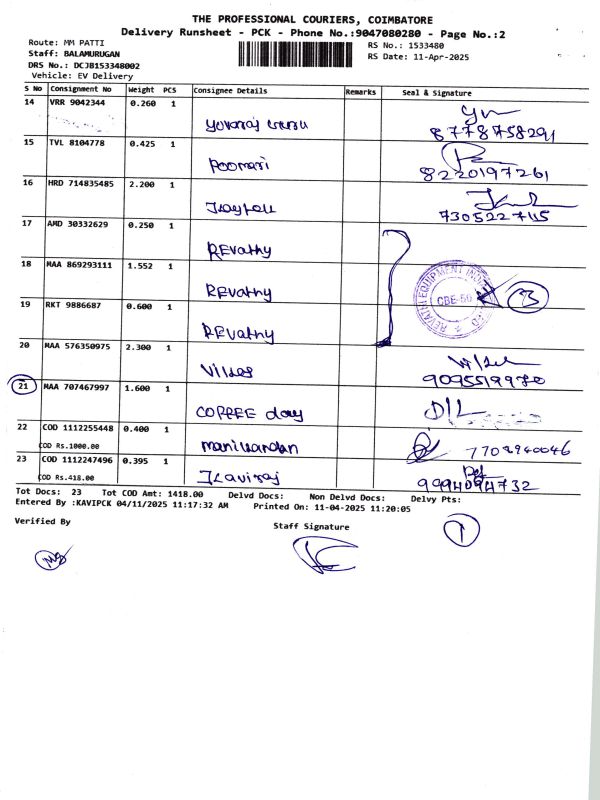 THE PROFESSIONAL COURIERS, COIMBATORE
Delivery Runsheet - PCK - Phone No.:9047080280 - Page No.:2
Route: MM PATTI
RS No.: 1533480
Staff: BALAMURUGAN
RS Date: 11-Apr-2025
DRS No.: DCJB153348002
Vehicle: EV Delivery
S No Consignment No Weight PCS Consignee Details Remarks Seal & Signature
14 VRR 9042344 0.260 1
8778758291
15 TVL 8104778 0.425 1
8220197261
16 HRD 714835485 2.200 1
17 AMD 30332629 0.250 1
REvathy
18 MAA 869293111 1.552 1
REvathy
REVATHI EQUIPMENT
CBE-50
3
19 RKT 9886687 0.600 1
REvathy
20 MAA 576350975 2.300 1
9095519970
21 MAA 707467997 1.600 1
COFFEE day D/L
22 COD 1112255448 0.400 1
COD Rs.1000.00
manikandan 7708940046
23 COD 1112247496 0.395 1
COD Rs.418.00
9994094732
Tot Docs: 23 Tot COD Amt: 1418.00 Delvd Docs: Non Delvd Docs: Delvy Pts:
Entered By :KAVIPCK 04/11/2025 11:17:32 AM Printed On: 11-04-2025 11:20:05
Verified By
Staff Signature
1